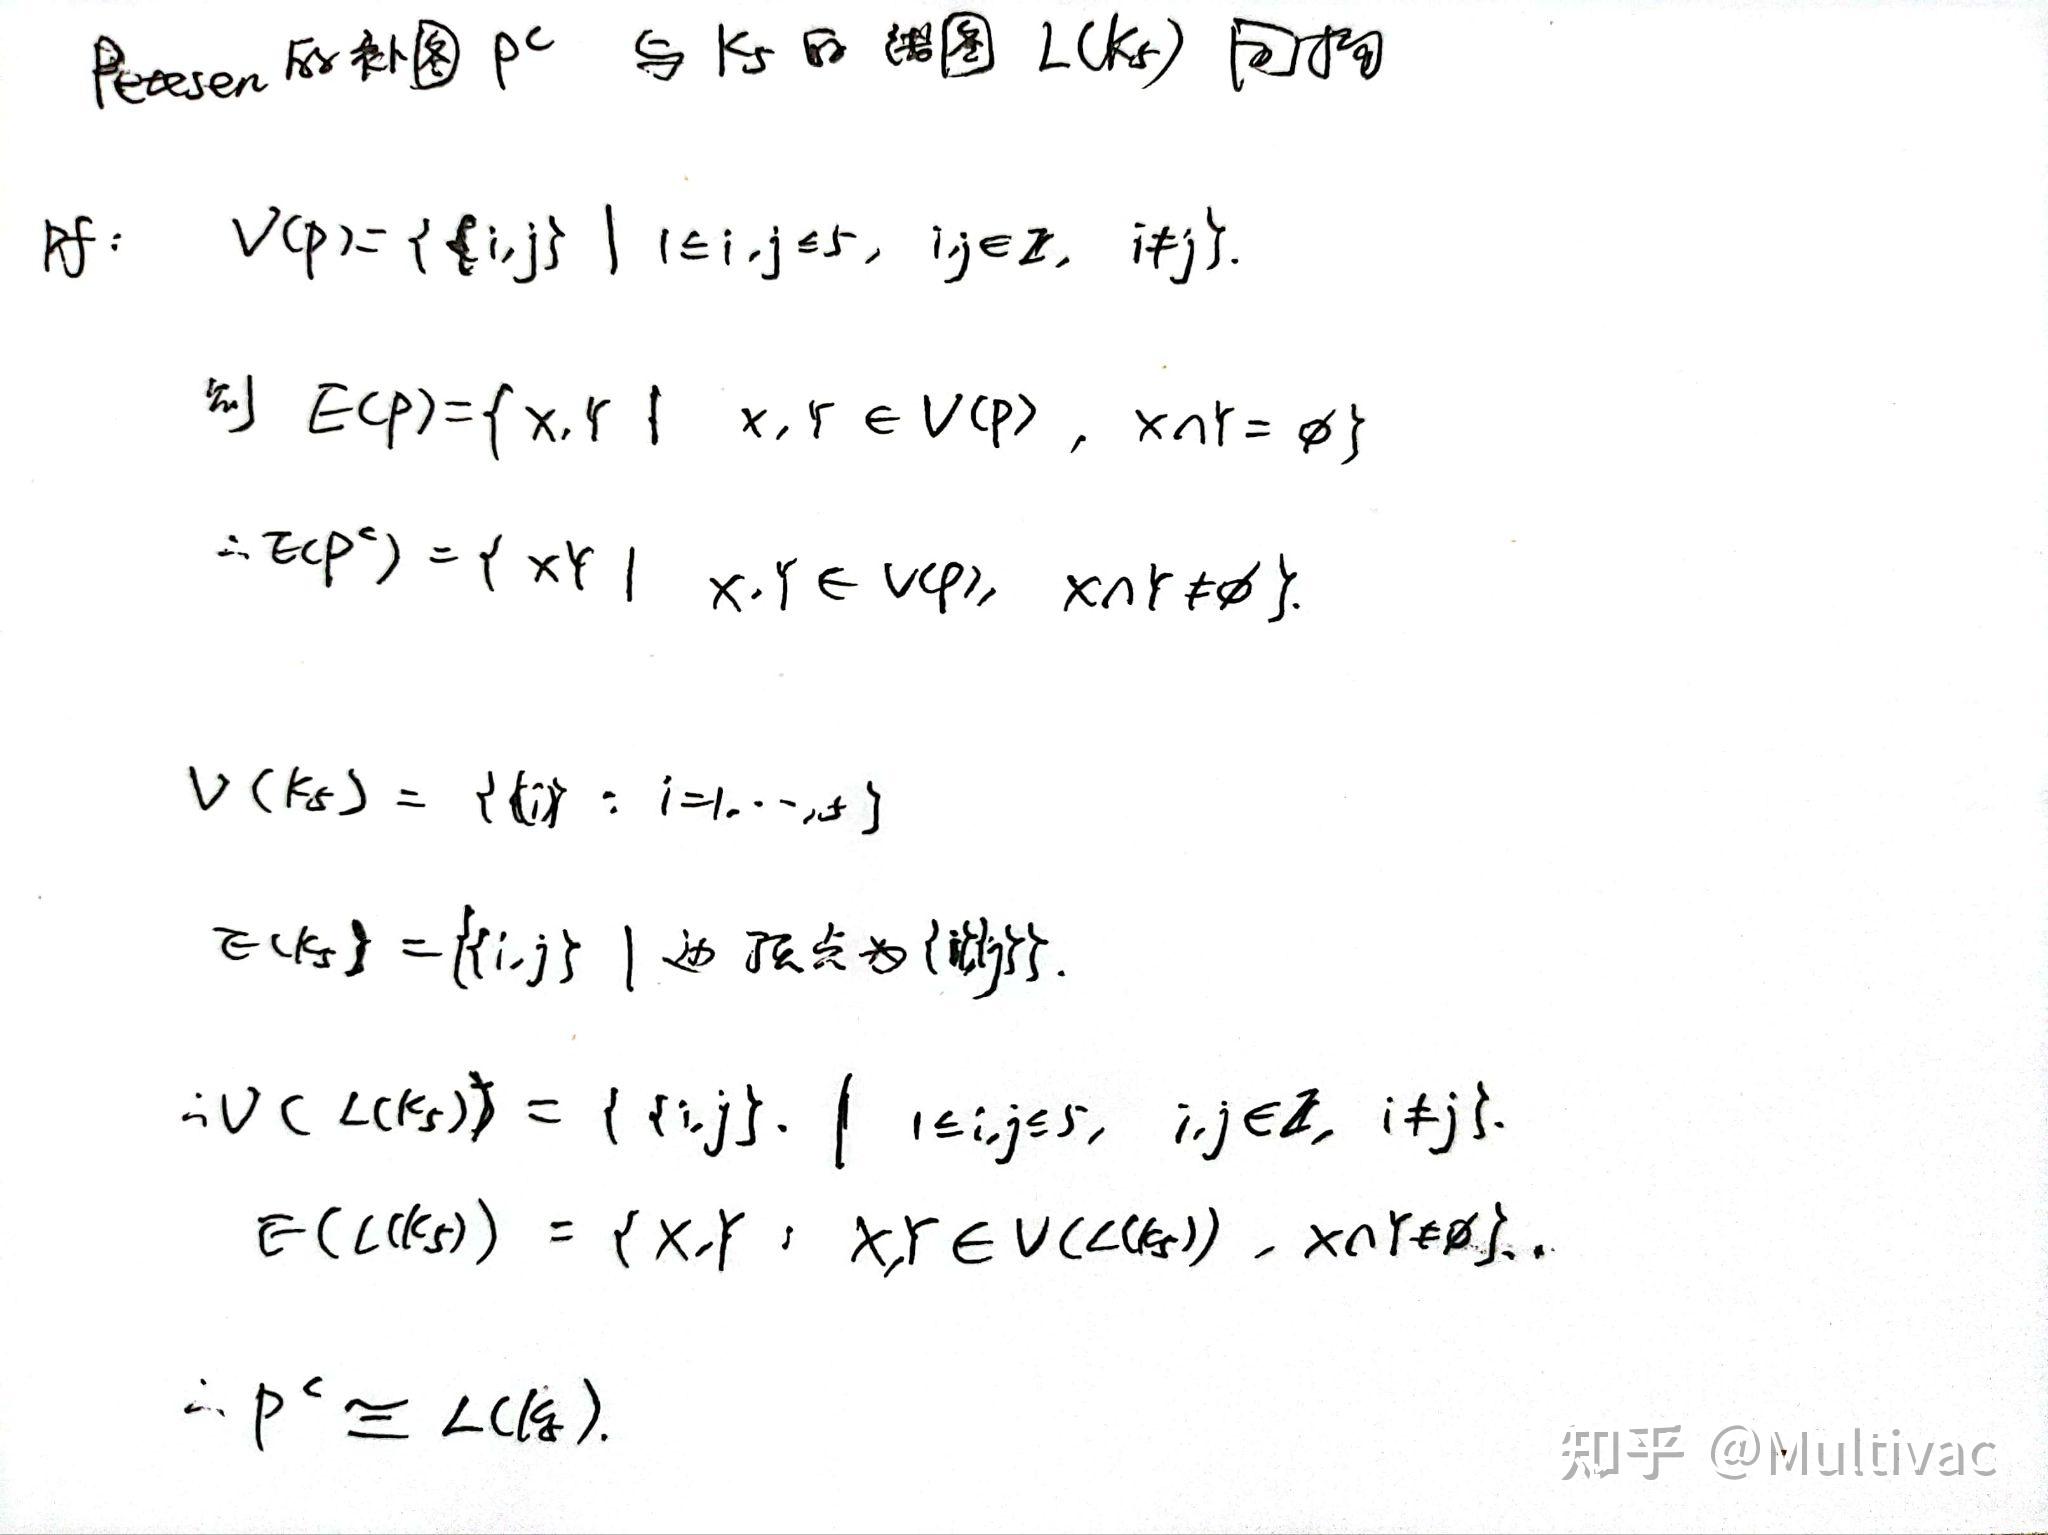 Petersen 的补图 P^c 与 K₅ 的线图 L(K₅) 同构
Pf: V(P)={{i,j} | 1≤i,j≤5, i,j∈Z, i≠j}.
则 E(P)={X,Y | X,Y∈V(P), X∩Y=∅}
∴E(P^c)={XY | X,Y∈V(P), X∩Y≠∅}.
V(K₅)={{i} : i=1,...,5}
E(K₅)={{i,j} | 边顶点为{i}{j}}.
∴V(L(K₅))={{i,j}. | 1≤i,j≤5, i,j∈Z, i≠j}.
E(L(K₅))={X,Y : X,Y∈V(L(K₅)), X∩Y≠∅}..
∴P^c≅L(K₅).
知乎 @Multivac